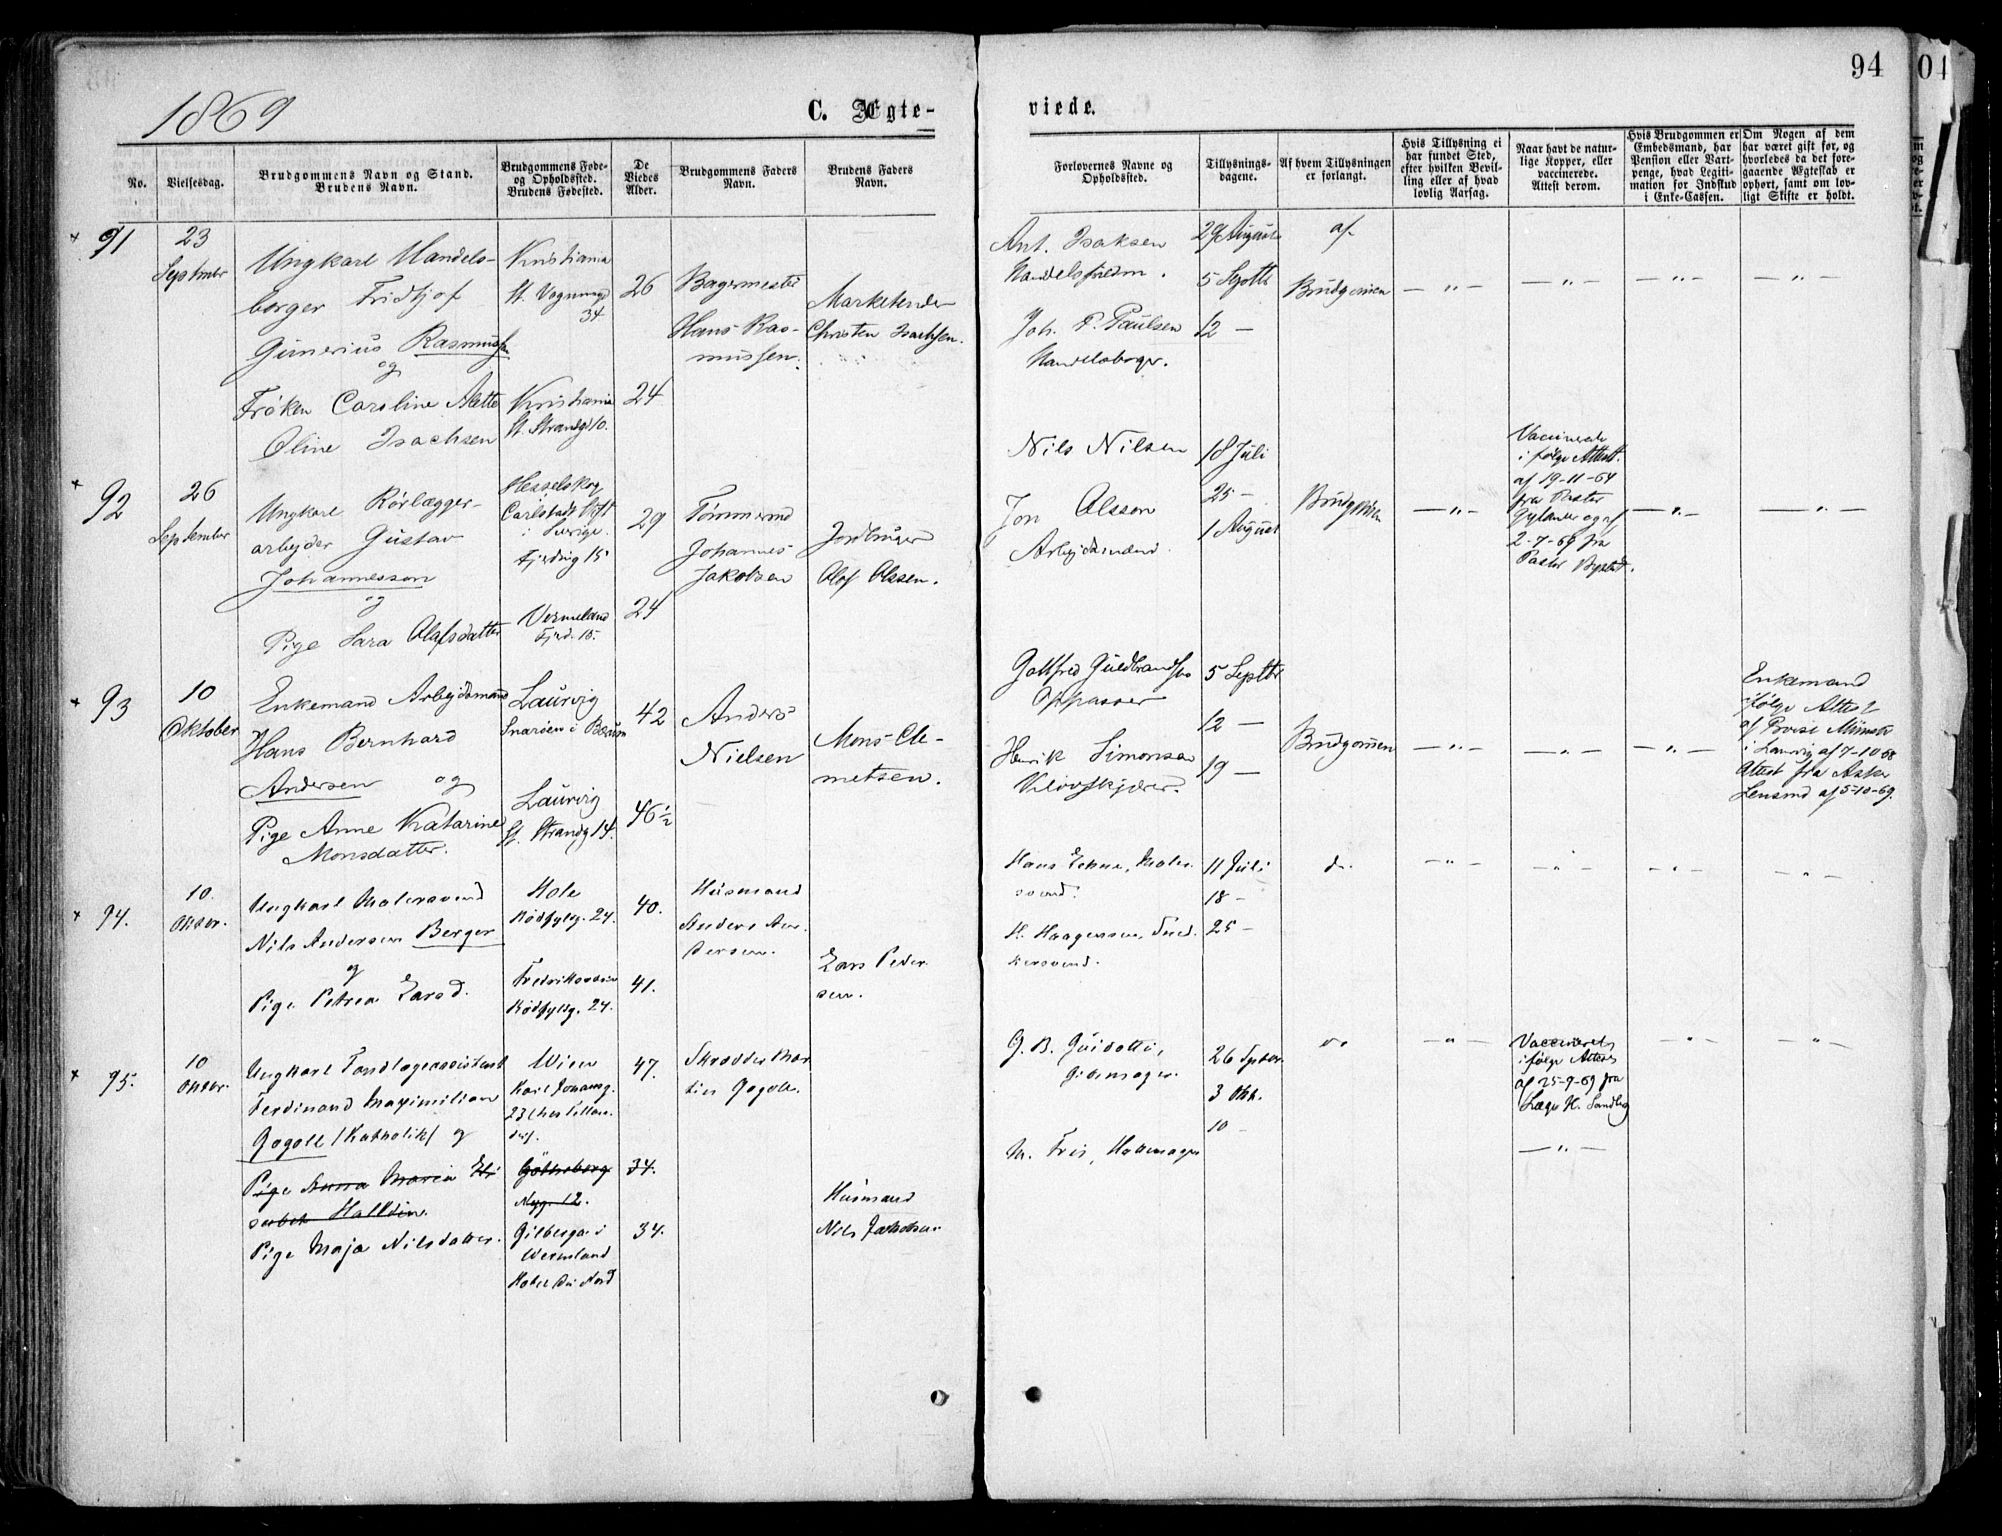 94
1869
C. Ægte-
viede.
No.
Vielsesdag.
Brudgommens Navn og Stand.
Brudens Navn.
Brudgommens Føde-
og Opholdssted.
Brudens Fødested.
De
Viedes
Alder.
Brudgommens Faders
Navn.
Brudens Faders
Navn.
Forlovernes Navne og
Opholdssted.
Tillysnings-
dagene.
Af hvem Tillysningen
er forlangt.
Hvis Tillysning ei
har fundet Sted,
efter hvilken Bevil-
ling eller af hvad
lovlig Aarsag.
Naar havt de natur-
lige Kopper, eller
vaccinerede.
Attest derom.
Hvis Brudgommen er
Embedsmand, har
Pension eller Vart-
penge, hvad Legiti-
mation for Indskud
i Enke-Cassen.
Om Nogen af dem
har været gift før, og
hvorledes da det fore-
gaaende Ægteskab er
ophørt, samt om lov-
ligt Skifte er holdt.
91
23
September
Ungkarl Handels-
borger Fridtjof
Gunerius Rasmussen
og
Frøken Caroline Alette
Oline Isachsen
Kristiania
St. Vognmg
34
Kristiania
St. Strandgd 10.
26
24
Bagermester
Hans Ras-
mussen.
Marketender
Christen Isachsen.
Ant. Isaksen
Handelsfuldm.
Joh. P. Paulsen
Handelsborger.
29 August
5 Septbr
12 —
af
Brudgommen
— „ —
— „ —
— „ —
— „ —
92
26
September
Ungkarl Rørlægger-
arbejder Gustav
Johannesson
og
Pige Sara Olafsdatter
Hesselskog
Carlstadt Stift
i Sverige.
Fjerding 15
Vermeland
Fjrd. 15.
29
24
Tømmermd
Johannes
Jakobsen
Jordbruger
Olof Olssen.
Nils Nilsen
Jon Olsson
Arbejdsmænd.
18 Juli
25 —
1 August
Brudgommen
— „ —
Vaccinerede
i følge Attest
af 19-11-64
fra Pastor
Gylander og af
2-7-69 fra
Pastor Bystad.
— „ —
— „ —
93
10
Oktober
Enkemand Arbejdsmand
Hans Bernhard
Andersen og
Pige Anne Katarine
Monsdatter.
Laurvig
Snarøen i Bærum
Laurvig
St. Strandg 14.
42
46½
Anders
Nielsen
Mons Cle-
metsen.
Gottfred Guldbrandsen
Oppasser
Henrik Simonsen
5 Septbr
12 —
19 —
Brudgommen
— „ —
— „ —
— „ —
Enkemand
ifølge Attest
i Laurvig af 7-10-68
Attest fra Asker
Lensmd af 5-10-69.
94.
10.
Oktbr.
Ungkarl Malersvend
Nils Andersen Berger
og
Pige Petrea Larsd.
Hole
Rødfyldg. 24.
Rødfyldg. 24.
40.
41.
Husmand
Anders An-
dersen.
Lars Peder-
sen.
svend.
H. Haagensen, Sned-
kersvend.
11 Juli
18 —
25 —
do.
— „ —
— „ —
— „ —
— „ —
95.
10
Oktbr.
Ungkarl Tandlægeassistent
Ferdinand Maximilian
Gogoll (Katholik) og
Pige Anna Maria Eli-
sabet Halldin.
Pige Maja Nilsdatter.
Wien
Karl Johansg.
Götheborg
Nyg. 12.
Gilberga i
Wermland
Hotel du Nord
47.
34.
34.
Skrædder Mar-
tin Gogoll.
Husmand
G. B. Guidotti,
Gibsmager.
M. Friis, Hattemager
26 Septbr.
3 Oktb.
10 —
do
„
Vaccineret
ifølge Attest
af 25-9-69 fra
Læge H. Sandberg
— „ —
„
— „ —